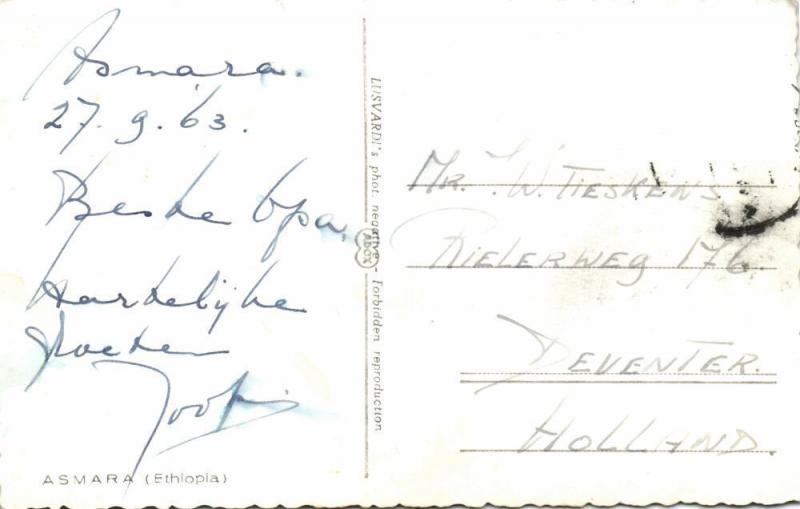 Asmara.
27.9.63.
Beste Opa,
Hartelijke
Groeten
Joop
ASMARA (Ethiopia)
LUSVARDI's phot. negative - forbidden reproduction
ADOX
MR. W. TIESKENS
RIELERWEG 176.
DEVENTER.
HOLLAND.